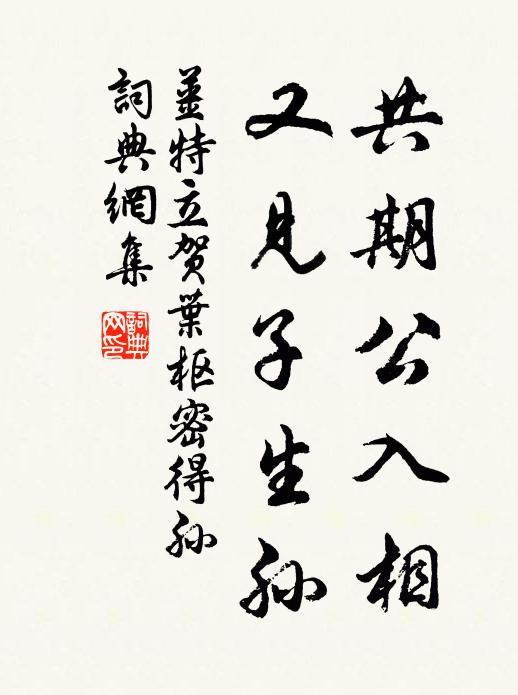 共期公入相
又見子生孙
姜特立贺葉枢密得孙
詞典網集
詞典
网印